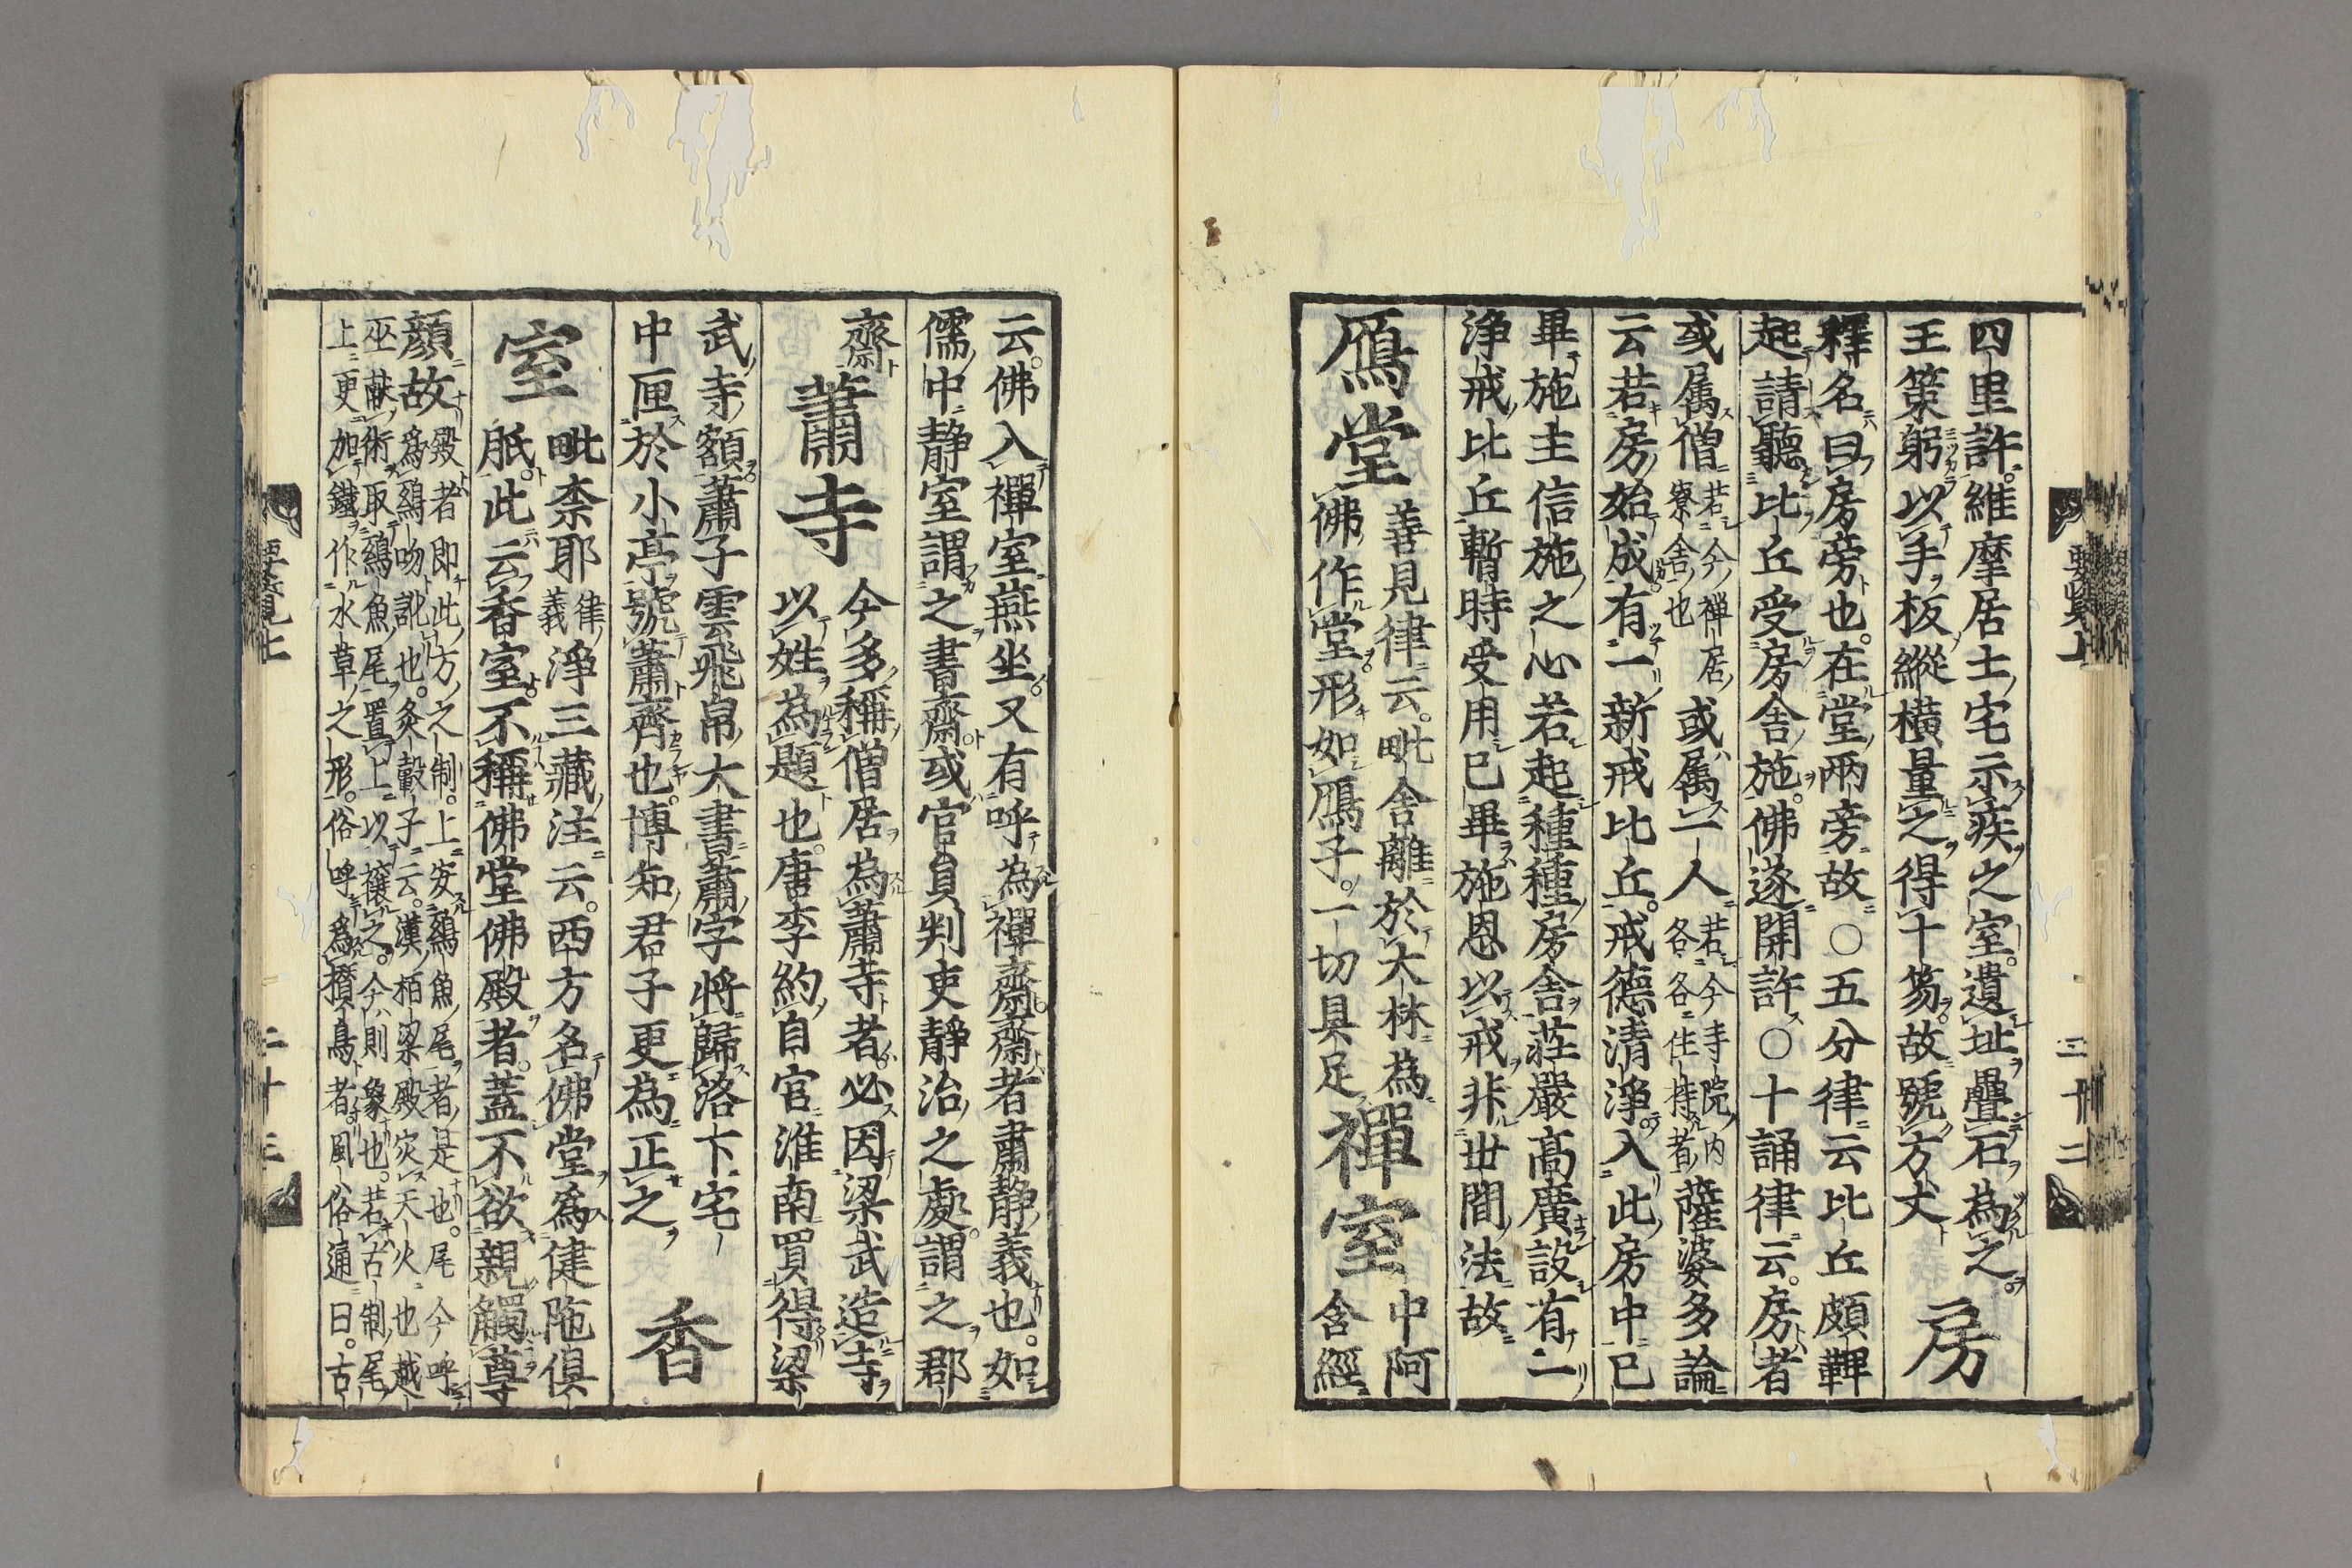 四里許。維摩居士宅示疾之室。遺址疊石為之。
王策躬以手板縱横量之得十笏。故號方丈
房
釋名曰房旁也。在堂兩旁故○五分律云比丘頗鞞
起請聽比丘受房舍施。佛遂開許○十誦律云。房者
或属僧
若今禅居
寮舍也
或属一人
若今寺院内
各各住持者
薩婆多論
云若房始成有一新戒比丘。戒德清淨入此房中已
畢施主信施之心若起種種房舍莊嚴高廣設有二
淨戒比丘暫時受用已畢施恩以戒非世間法故
鴈堂
善見律云。毗舍離於大林為
佛作堂形如鴈子。一切具足
禪室
中阿
含經
云。佛入禪室燕坐。又有呼為禪齋齋者肅静義也。如
儒中静室謂之書齋或官員判吏静治之處。謂之郡
齋
蕭寺
今多稱僧居為蕭寺者。必因梁武造寺
以姓為題也。唐李約自官淮南買得梁
武寺額蕭子雲飛帛大書蕭字將歸洛下宅
中匣於小亭號蕭齊也。博知君子更為正之
香
室
毗柰耶
律
義
淨三藏注云。西方名佛堂為健陁俱
胝。此云香室。不稱佛堂佛殿者。蓋不欲親觸尊
顏故
殿者即此方之制。上安鴟魚尾者是也。尾今呼
為鴟吻訛也。灸轂子云。漢栢梁殿灾天火也越
巫献術取鴟魚尾置上以禳之。今則象也。若古制尾
上更加鐵作水草之形。俗呼為攅鳥者。風俗通曰。古
二十二
二十三